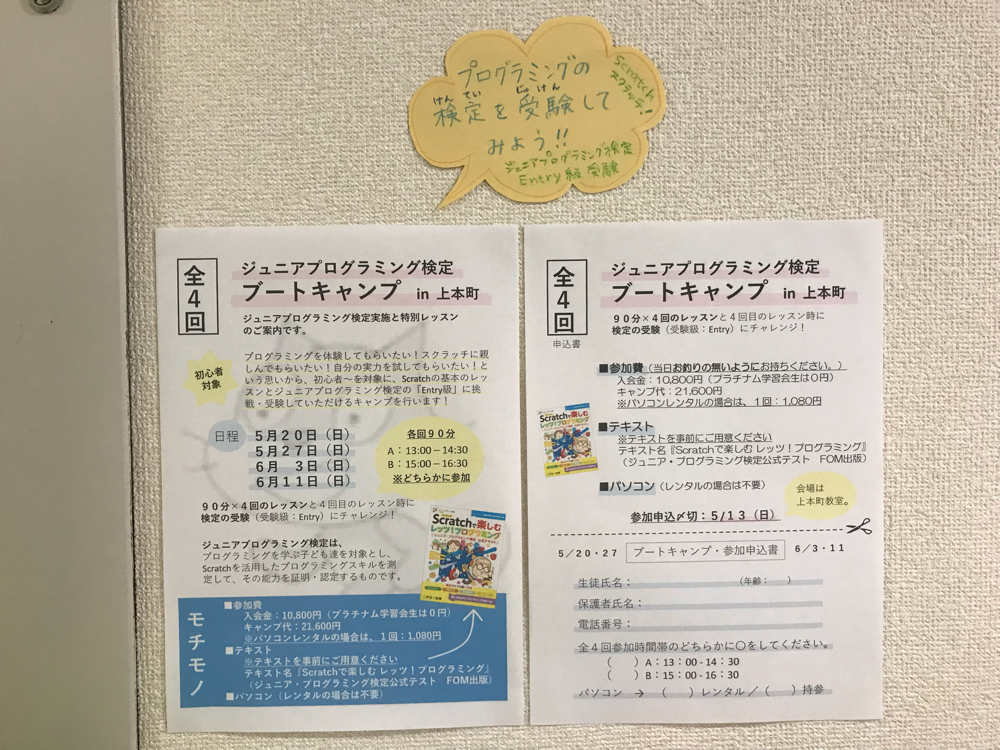 プログラミングの
けん てい じゅ けん
検定を受験して
みよう!!
Scratch
スクラッチ!
ジュニアプログラミング検定
Entry級 受験
全4回
ジュニアプログラミング検定
ブートキャンプ in 上本町
ジュニアプログラミング検定実施と特別レッスン
のご案内です。
初心者
対象
プログラミングを体験してもらいたい！スクラッチに親
しんでもらいたい！自分の実力を試してもらいたい！と
いう思いから、初心者～を対象に、Scratchの基本のレッ
スンとジュニアプログラミング検定の「Entry級」に挑
戦・受験していただけるキャンプを行います！
日程
5月20日（日）
5月27日（日）
6月 3日（日）
6月11日（日）
各回90分
A：13:00－14:30
B：15:00－16:30
※どちらかに参加
90分×4回のレッスンと4回目のレッスン時に
検定の受験（受験級：Entry）にチャレンジ！
ジュニアプログラミング検定は、
プログラミングを学ぶ子ども達を対象とし、
Scratchを活用したプログラミングスキルを測
定して、その能力を証明・認定するものです。
Scratchで楽しむ
レッツ！プログラミング
モチモノ
■参加費
入会金：10,800円（プラチナム学習会生は0円）
キャンプ代：21,600円
※パソコンレンタルの場合は、1回：1,080円
■テキスト
※テキストを事前にご用意ください
テキスト名『Scratchで楽しむ レッツ！プログラミング』
（ジュニア・プログラミング検定公式テスト FOM出版）
■パソコン（レンタルの場合は不要）
全4回
申込書
ジュニアプログラミング検定
ブートキャンプ in 上本町
90分×4回のレッスンと4回目のレッスン時に
検定の受験（受験級：Entry）にチャレンジ！
■参加費（当日お釣りの無いようにお持ちください。）
入会金：10,800円（プラチナム学習会生は0円）
キャンプ代：21,600円
※パソコンレンタルの場合は、1回：1,080円
Scratchで楽しむ
レッツ！プログラミング
■テキスト
※テキストを事前にご用意ください
テキスト名『Scratchで楽しむ レッツ！プログラミング』
（ジュニア・プログラミング検定公式テスト FOM出版）
■パソコン（レンタルの場合は不要）
会場は
上本町教室。
参加申込〆切：5/13（日）
5／20・27 ブートキャンプ・参加申込書 6／3・11
生徒氏名： （年齢： ）
保護者氏名：
電話番号：
全4回参加時間帯のどちらかに○をしてください。
（ ）A：13：00-14：30
（ ）B：15：00-16：30
パソコン → （ ）レンタル／（ ）持参